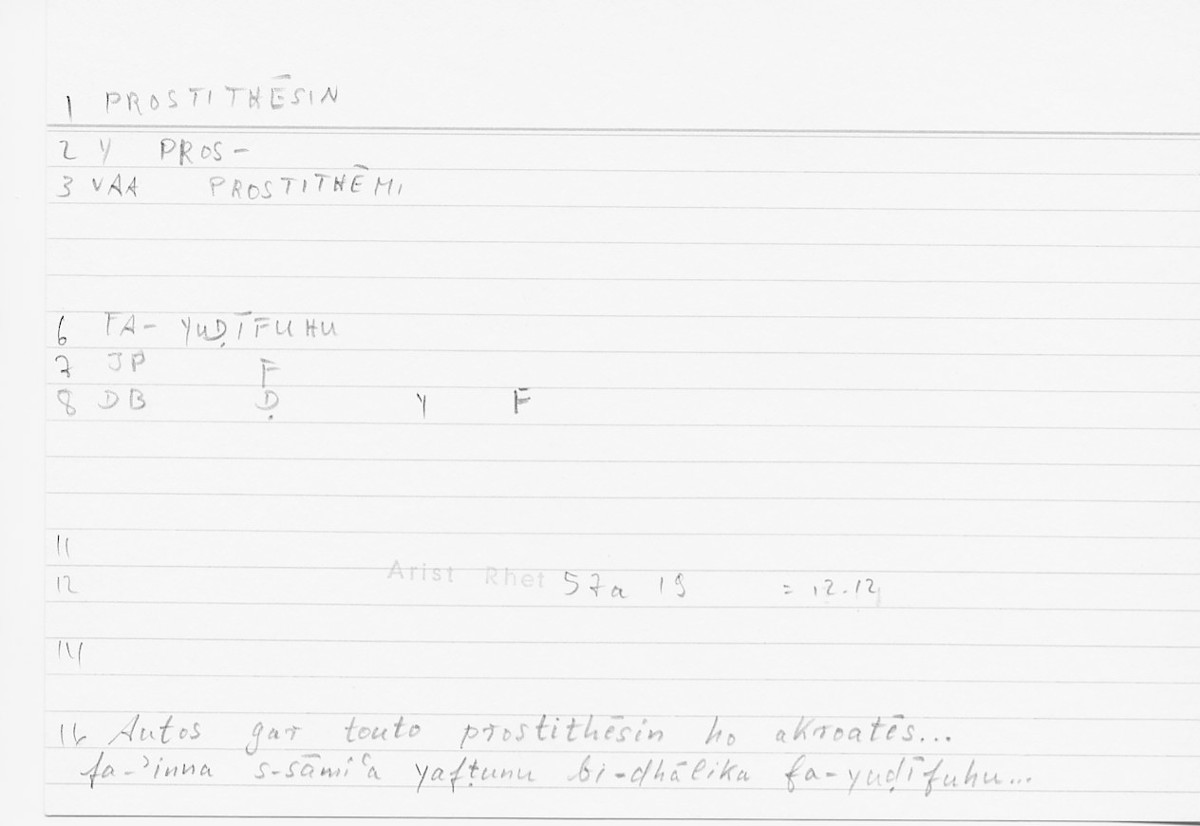 1 PROSTITHĒSIN
2 Y PROS-
3 VAA PROSTITHĒMI
6 FA- YUḌĪFUHU
7 JP F
8 DB Ḍ Y F
11
12 Arist Rhet 57a 19 = 12.12
14
16 Autos gar touto prostithēsin ho akroatēs...
fa-ʾinna s-sāmiʿa yafṭunu bi-dhālika fa-yuḍīfuhu...